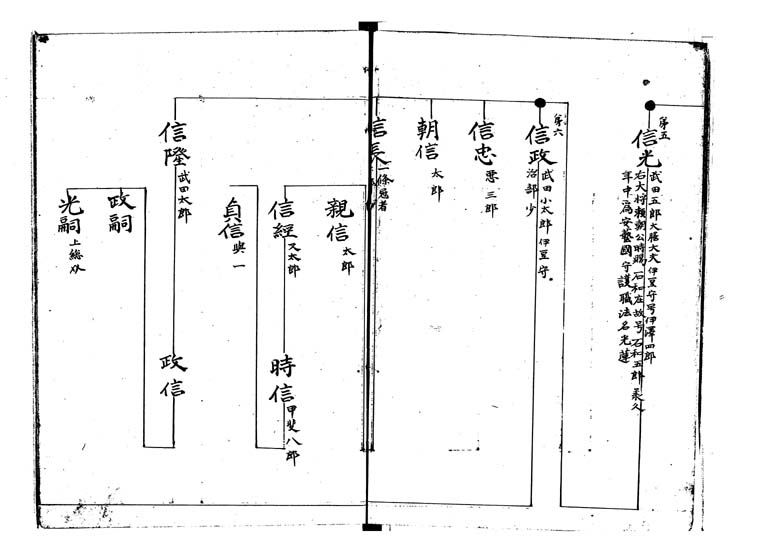 第五
信光
武田五郎大膳大夫伊豆守号伊澤四郎
右大将頼朝公時賜石和庄故号石和五郎 承久
年中為安藝國守護職法名光蓮
第六
信政
武田小太郎 伊豆守
治部少
信忠
悪三郎
朝信
太郎
信長
一條
親信
太郎
信經
又太郎
時信
甲斐八郎
貞信
與一
信隆
武田太郎
政信
政嗣
光嗣
上總